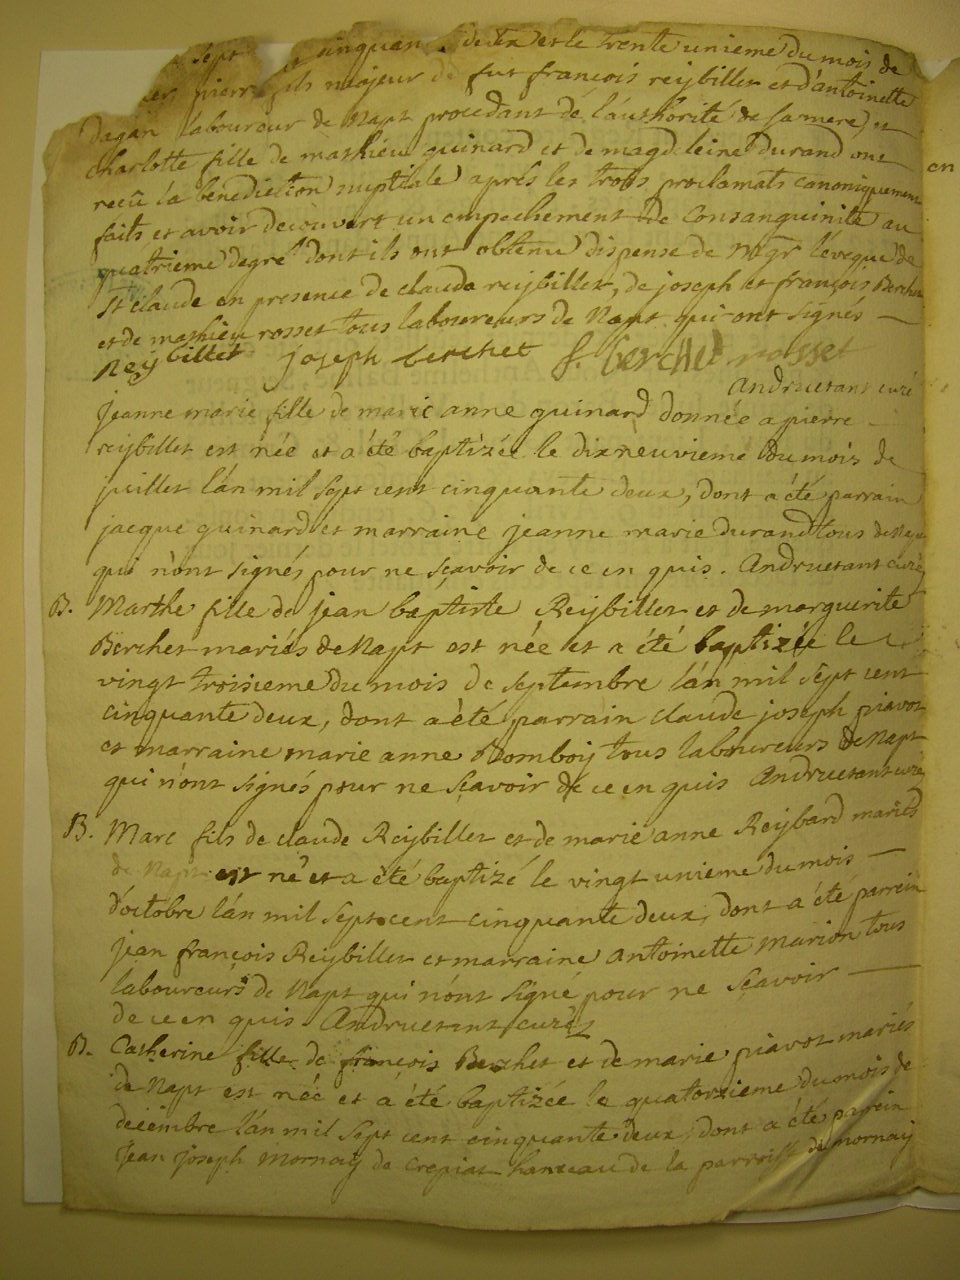 sept cinquan deux et le trente unieme du mois de
pierre fils majeur de fut françois reijbillet et d'antoinette
dagan laboureur de Napt procedant de l'authorité de sa mere, et
charlotte fille de mathieu guinard et de magdeleine durand ont
en
recû la benediction nuptiale aprés les trois proclamats canoniquement
faits et avoir decouvert un empechement de Consanguinité au
quatrieme degré dont ils ont obtenu dispense de Mgr l'eveque de
St claude en presence de claude reijbillet, de joseph et françois Berchet
et de mathieu rosset tous laboureurs de Napt qui ont signés —
Reijbillet joseph berchet f. berchet rosset
Andruetant curé
jeanne marie fille de marie anne guinard donnée a pierre
reijbillet est née et a été baptizée le dixneuvieme du mois de
juillet l'an mil sept cent cinquante deux, dont a été parrain
jacque guinard et marraine jeanne marie durand tous de Napt
qui n'ont signés pour ne sçavoir de ce en quis. Andruetant curé
B. Marthe fille de jean baptiste Reijbillet et de marguerite
Berchet mariés de Napt est née et a été baptizée le
vingt troisieme du mois de septembre l'an mil sept cent
cinquante deux, dont a été parrain claude joseph piavoz
et marraine marie anne Romboij tous laboureurs de Napt
qui n'ont signés pour ne sçavoir de ce en quis Andruetant curé
B. Marc fils de claude Reijbillet et de marie anne Reijbard mariés
de Napt est né et a été baptizé le vingt unieme du mois —
d'octobre l'an mil sept cent cinquante deux, dont a été parrein
jean françois Reijbillet et marraine antoinette Marion tous
laboureurs de Napt qui n'ont signé pour ne sçavoir —
de ce en quis. Andruetant curé
B. Catherine fille de françois Berchet et de marie piavoz mariés
de Napt est née et a été baptizée le quatorzieme du mois de
decembre l'an mil sept cent cinquante deux, dont a été parrein
jean joseph Mornaij de Crepiat hameau de la parroisse de mornaij